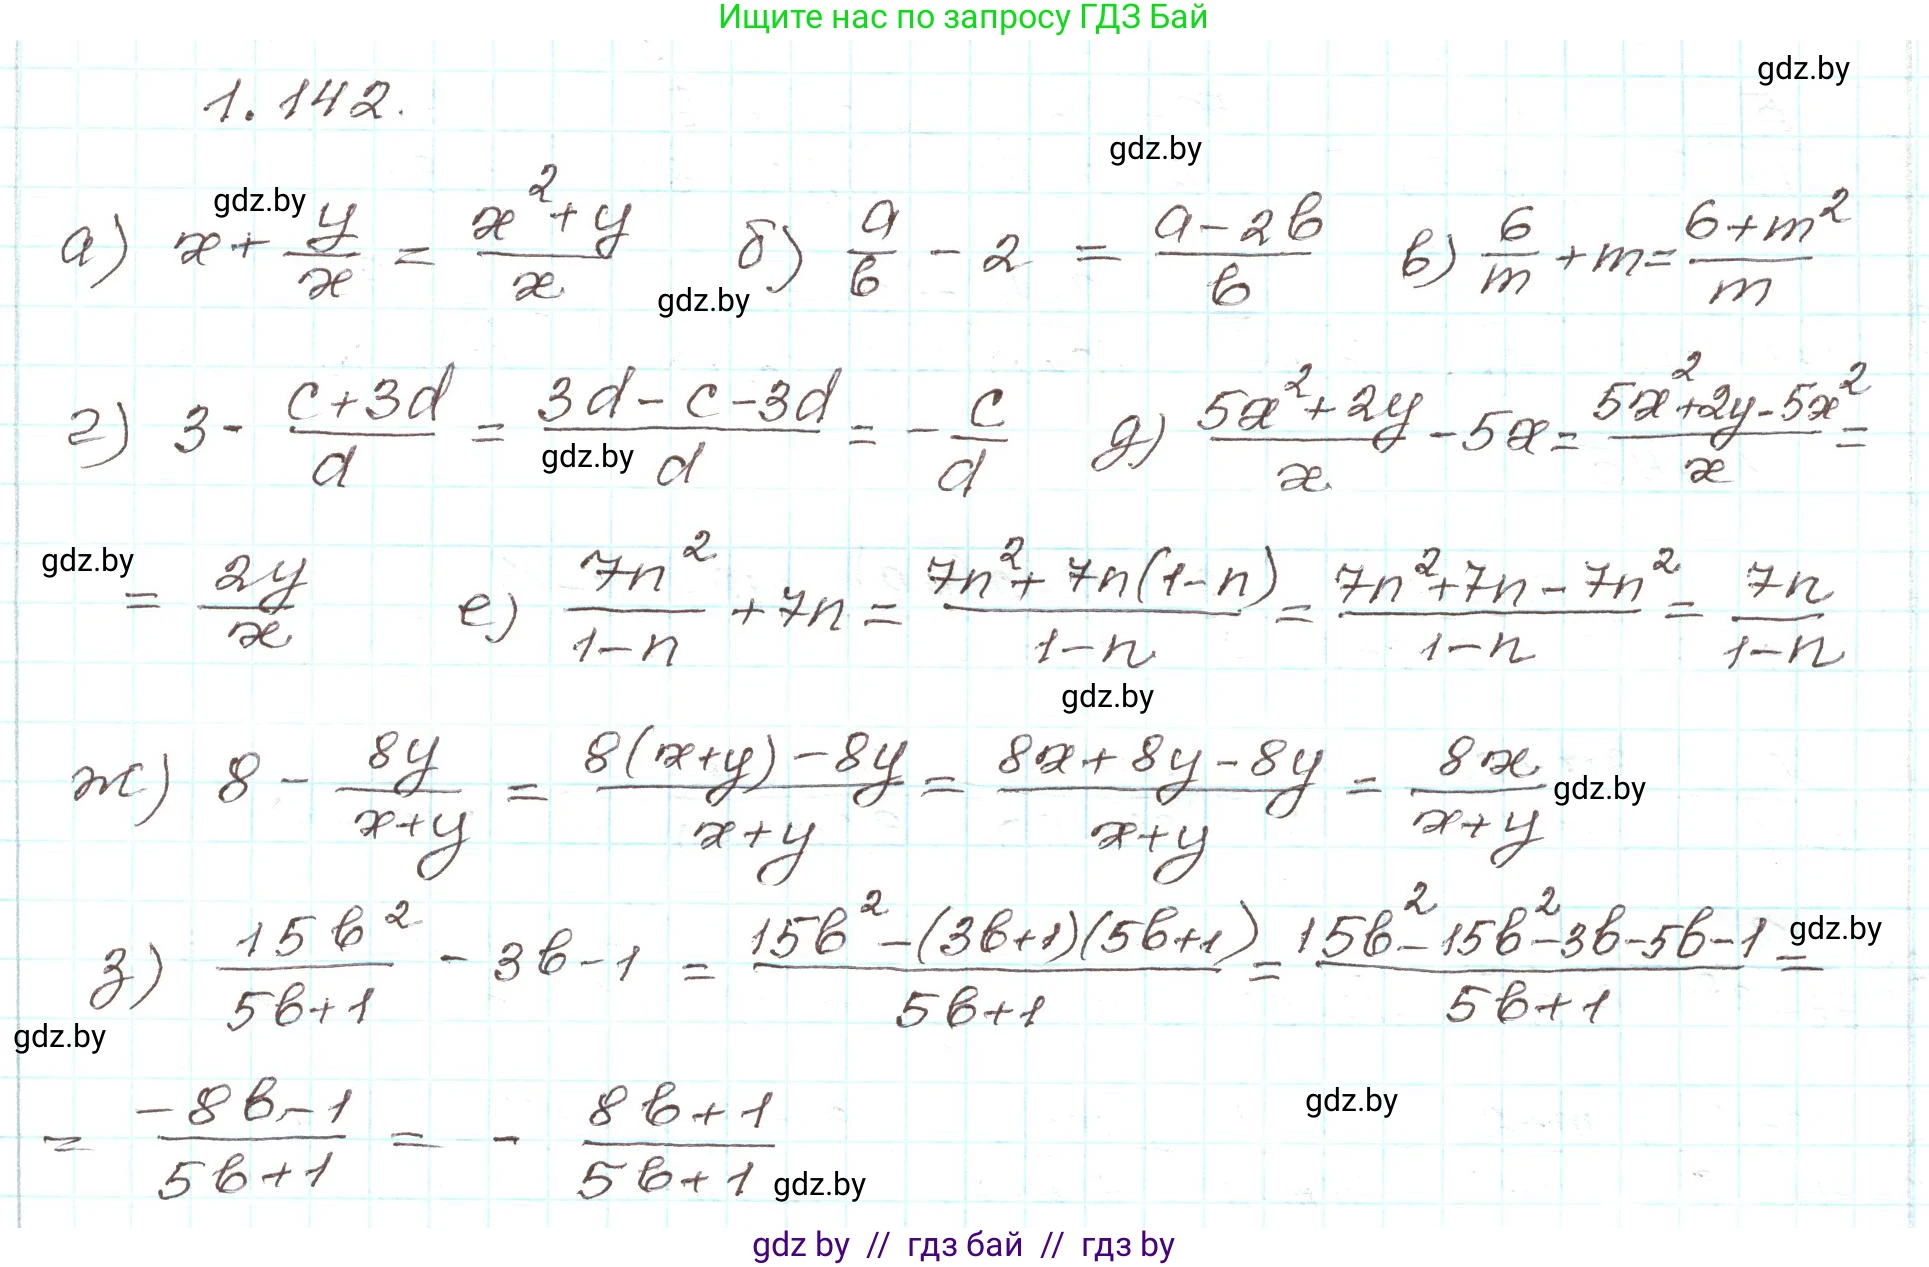 Ищите нас по запросу ГДЗ Бай
gdz.by
1.142.
gdz.by
gdz.by
а) x + y/x = (x² + y)/x б) a/b - 2 = (a - 2b)/b в) 6/m + m = (6 + m²)/m
gdz.by
г) 3 - (c + 3d)/d = (3d - c - 3d)/d = - c/d д) (5x² + 2y)/x - 5x = (5x² + 2y - 5x²)/x =
gdz.by
gdz.by
= 2y/x е) 7n²/(1-n) + 7n = (7n² + 7n(1-n))/(1-n) = (7n² + 7n - 7n²)/(1-n) = 7n/(1-n)
gdz.by
ж) 8 - 8y/(x+y) = (8(x+y) - 8y)/(x+y) = (8x + 8y - 8y)/(x+y) = 8x/(x+y)
gdz.by
з) 15b²/(5b+1) - 3b - 1 = (15b² - (3b+1)(5b+1))/(5b+1) = (15b² - 15b² - 3b - 5b - 1)/(5b+1) =
gdz.by
gdz.by
= (-8b - 1)/(5b+1) = - (8b+1)/(5b+1)
gdz.by
gdz.by
gdz by // гдз бай // гдз by